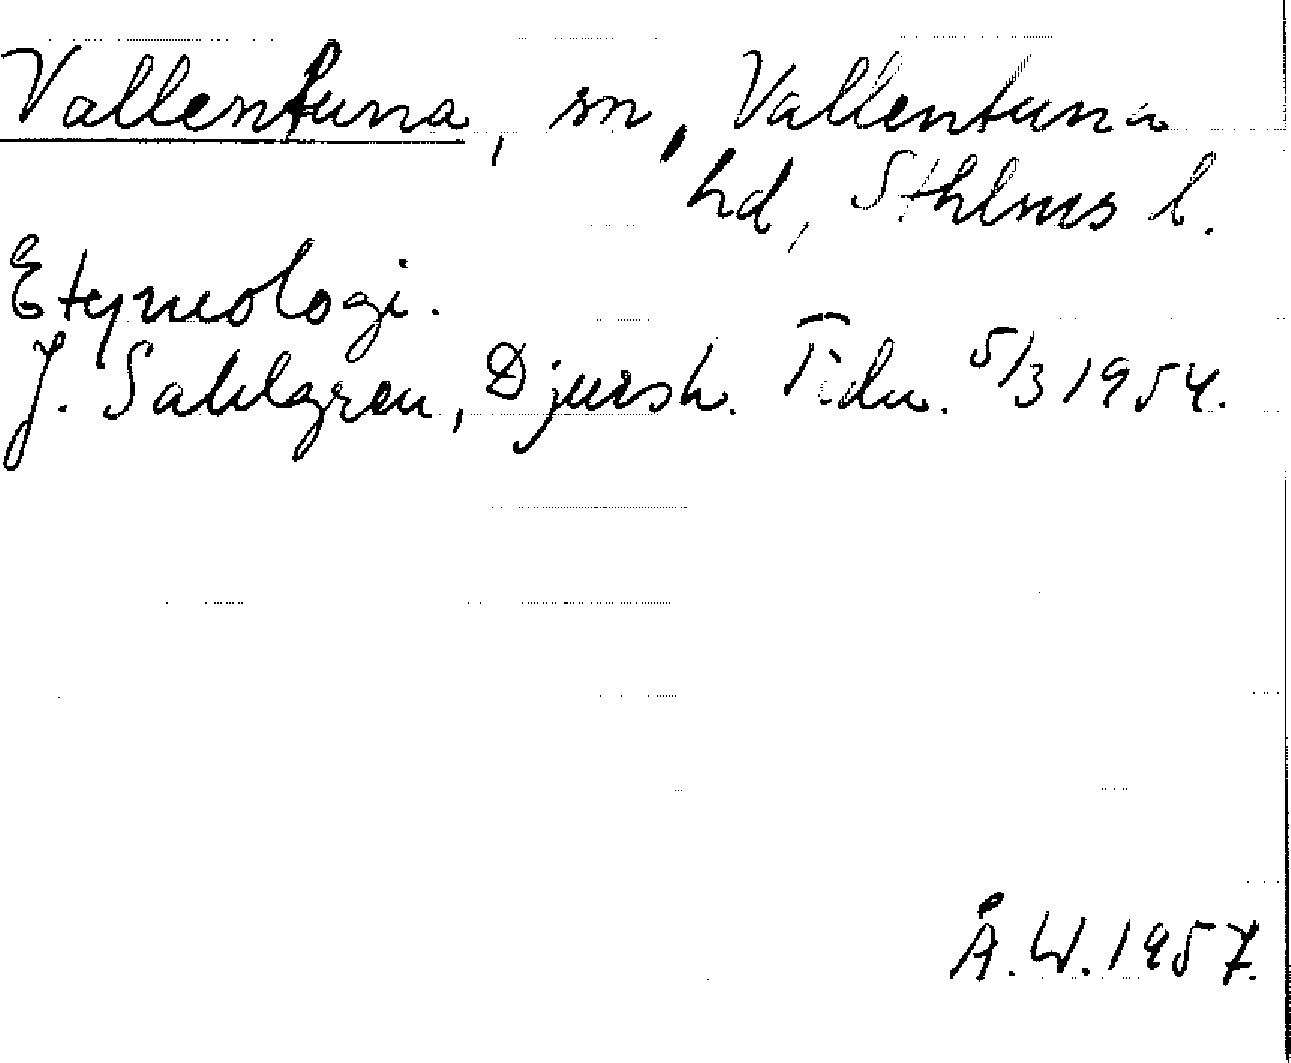 Vallentuna, sn, Vallentuna
hd, Sthlms l.
Etymologi.
J. Sahlgren, Djursh. Tidn. 5/3 1954.
Å.W. 1957.